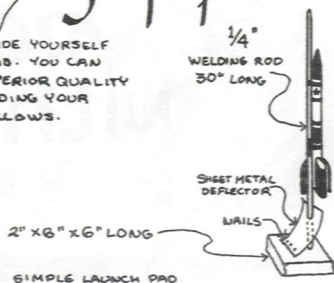 DE YOURSELF
YOU CAN
PERIOR QUALITY
DING YOUR
LLOWS.
1/4"
WELDING ROD
30" LONG
SHEET METAL
DEFLECTOR
NAILS
2" X 8" X 6" LONG
SIMPLE LAUNCH PAD